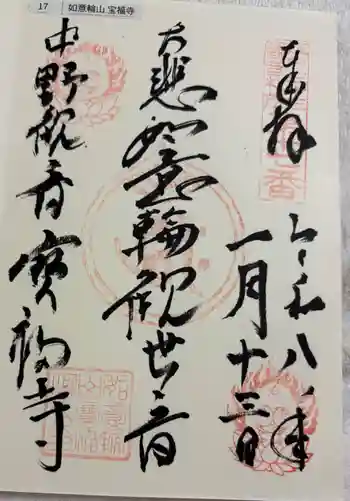 17 如意輪山 宝福寺
奉拝
令和八年
一月十三日
大悲如意輪観世音
中野観音 寳福寺